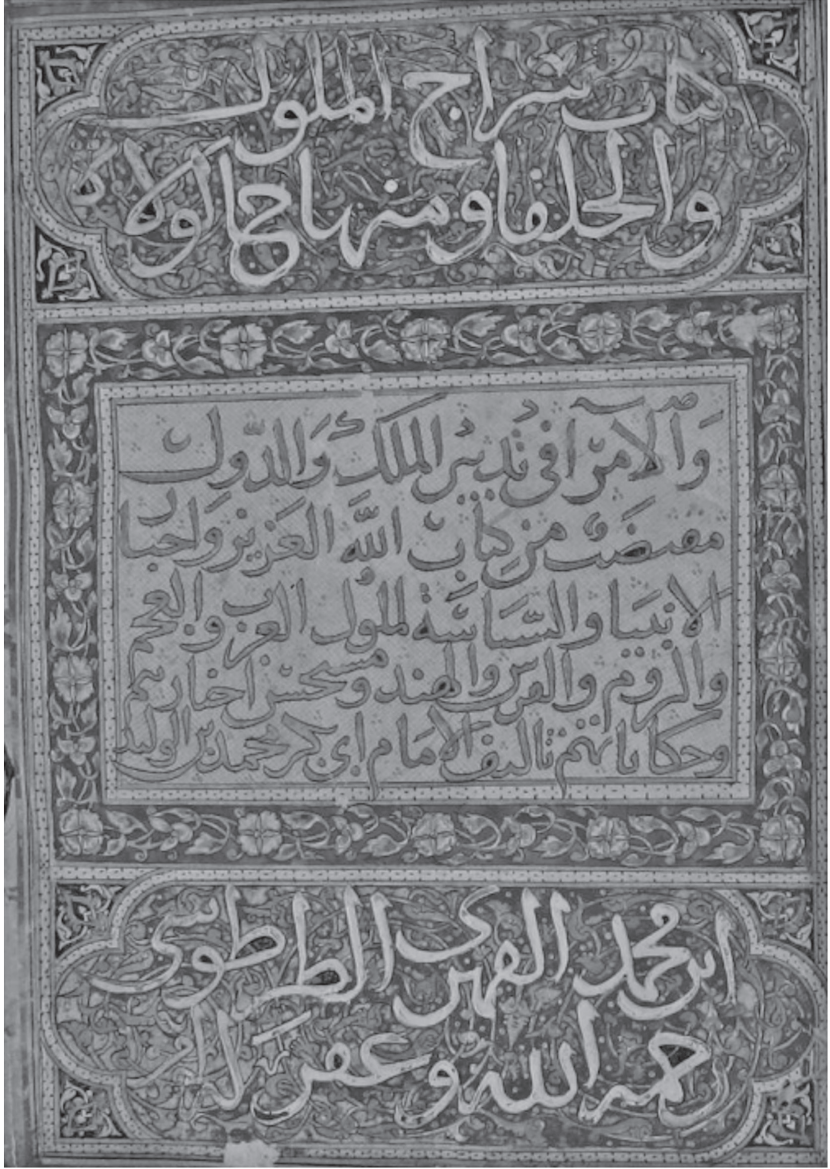 كتاب سراج الملوك
والخلفا ومنهاج الولاة
والامرا في تدبير الملك والدول
مقتضب من كتاب الله العزيز واخبار
الانبيا والسياسة لملوك العرب والعجم
والروم والفرس والهند ومستحسن اخبارهم
وحكاياتهم تاليف الامام ابي بكر محمد بن الوليد
ابن محمد الفهري الطرطوسي
رحمه الله وغفر له